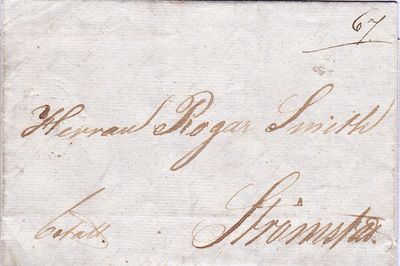 67
Herran Rogar Smith
Strömstad.
betalt.